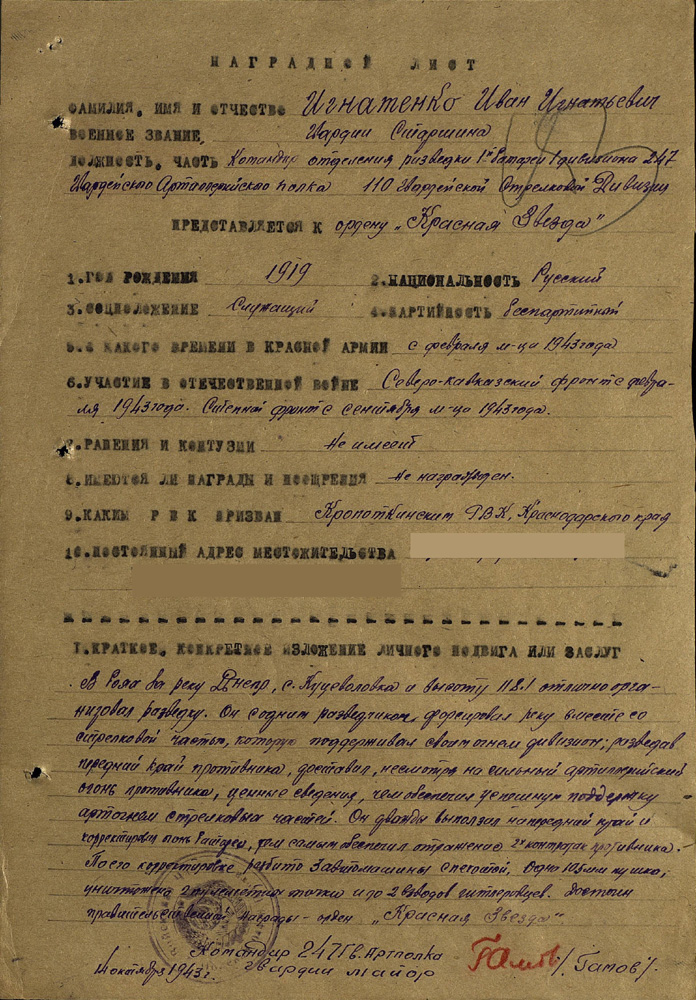 НАГРАДНОЙ ЛИСТ
ФАМИЛИЯ, ИМЯ И ОТЧЕСТВО Игнатенко Иван Игнатьевич
ВОЕННОЕ ЗВАНИЕ, Гвардии Старшина
ДОЛЖНОСТЬ, ЧАСТЬ Командир отделения разведки 1й батареи 1 дивизиона 247
Гвардейского Артиллерийского полка 110 Гвардейской Стрелковой Дивизии
ПРЕДСТАВЛЯЕТСЯ К ордену „Красная Звезда"
1. ГОД РОЖДЕНИЯ 1919 2. НАЦИОНАЛЬНОСТЬ Русский
3. СОЦПОЛОЖЕНИЕ Служащий 4. ПАРТИЙНОСТЬ беспартийный
5. С КАКОГО ВРЕМЕНИ В КРАСНОЙ АРМИИ с февраля м-ца 1943 года
6. УЧАСТИЕ В ОТЕЧЕСТВЕННОЙ ВОЙНЕ Северо-кавказский фронт с февра-
ля 1943 года. Степной фронт с сентября м-ца 1943 года.
7. РАНЕНИЯ И КОНТУЗИИ Не имеет
8. ИМЕЮТСЯ ЛИ НАГРАДЫ И ПООЩРЕНИЯ Не награжден.
9. КАКИМ РВК ПРИЗВАН Кропоткинским ГВК, Краснодарского края
10. ПОСТОЯННЫЙ АДРЕС МЕСТОЖИТЕЛЬСТВА
I. КРАТКОЕ, КОНКРЕТНОЕ ИЗЛОЖЕНИЕ ЛИЧНОГО ПОДВИГА ИЛИ ЗАСЛУГ
В боях за реку Днепр, с. Куцеволовка и высоту 118.1 отлично орга-
низовал разведку. Он с одним разведчиком, форсировал реку вместе со
стрелковой частью, которую поддерживал своим огнем дивизион; разведав
передний край противника, доставил, несмотря на сильный артиллерийский
огонь противника, ценные сведения, чем обеспечил успешную поддержку
артогнем стрелковых частей. Он дважды выползал на передний край и
корректировал огонь батареи, тем самым обеспечил отражение 2х контратак противника.
По его корректировке разбито 3 автомашины с пехотой, одна 105 мм пушка,
уничтожена 2 пулеметных точки и до 2 взводов гитлеровцев. Достоин
правительственной награды - орден „Красная Звезда"
Командир 247 Гв. Артполка
14 октября 1943 г. Гвардии майор /Гапов/.